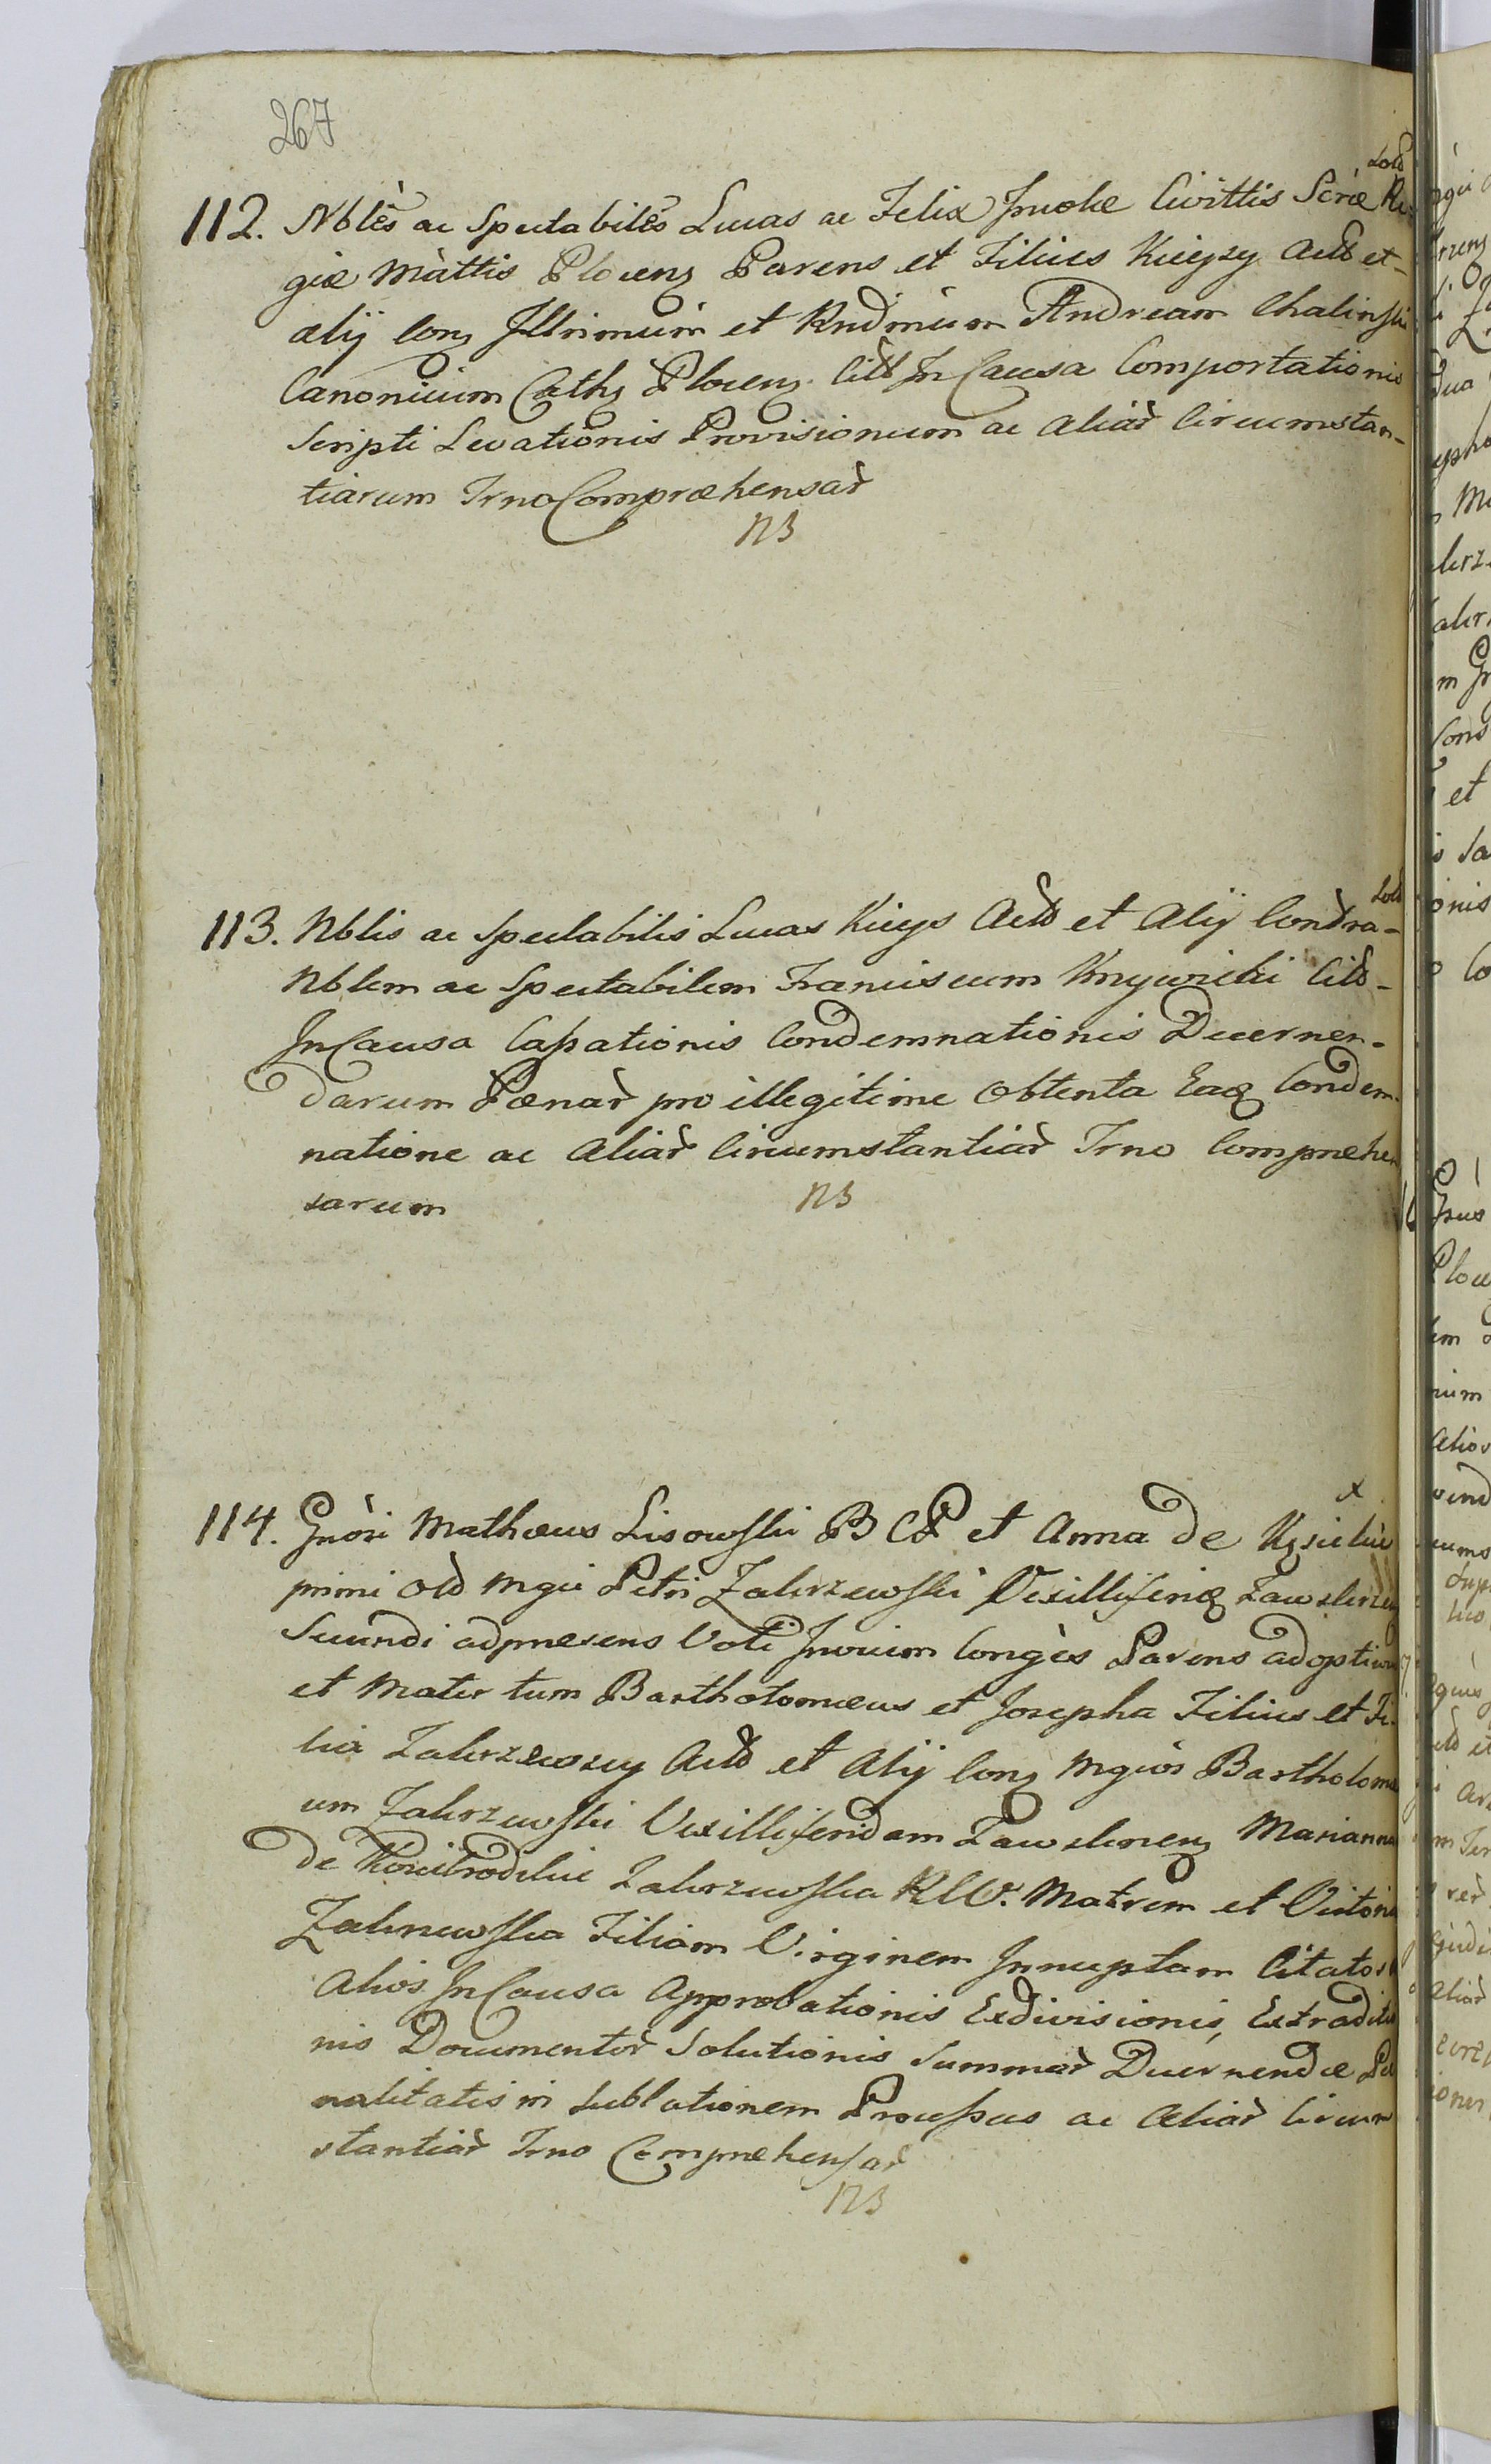 267
112. Nblès ac Spectabiles Lucas ac Felix Civittis Scræ Re-
giæ Mattis Plocens Parens et Filius Kieyzy Actt et
alij Cons Illrimum et Rndmum Andream Chalinski
Canonicum Caths Plocens Citt In Causa Comportationis
Scripti Levationis Provisionum ac aliar Circumstan-
tiarum Trno Compræhensar
NB
113. Nblis ac Spectabilis Lucas Kieys Actt et Alij Contra
Nblem ac Spectabilem Franciscum Citt
In Causa Cassationis Condemnationis Decernen-
darum Pœnar pro illegitime Obtenta Eaq Condem-
natione ac Aliar Circumstantiar Trno Compræhen
sarum
NB
x
114. Gnòri Mathæus Lisowski B C P et Anna de
primi old Mgci Petri Zakrzewski Vexilliferi Zawskrzen
Secundi adpræsens Voti Conges Parens adoptivus
et Mater tum Bartholomæus et Josepha Filius et Fi-
lia Zakrzewscy Actt et Alij Cons Mgcos Bartholomæ
um Zakrzewski Vexilliferidam Zawskrzens Mariannam
de Zakrzewska Matrem et Victoria
Zakrzewska Filiam Virginem Innuptam Citatos
Alios In Causa Approbationis Exdivisionis, Extraditio
nis Documentor Solutionis Summar Decernendæ Pæ
nalitatis in Sublationem Processus ac Aliar Circum
stantiar Trno Compræhensar
NB